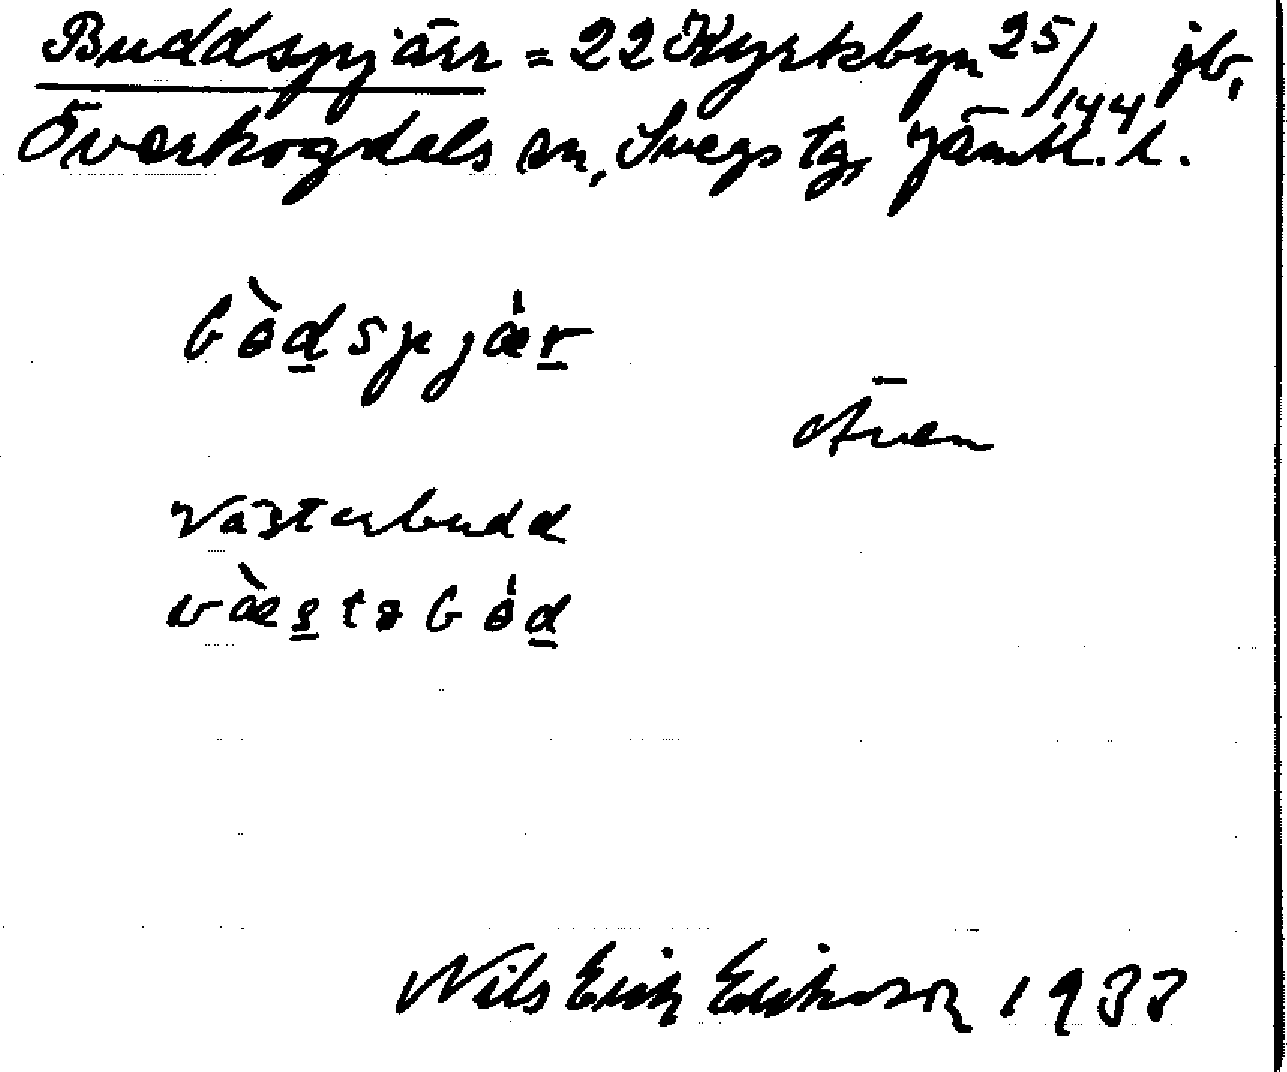 Buddspjärr = 22 Kyrkbyn 25/144 jb,
Överhogdals sn, Svegs tg, Jämtl. l.
bòd̲spjær̲
Även
Västerbudd
vὰes̲təbód̲
Nils Erik Erikson 1933